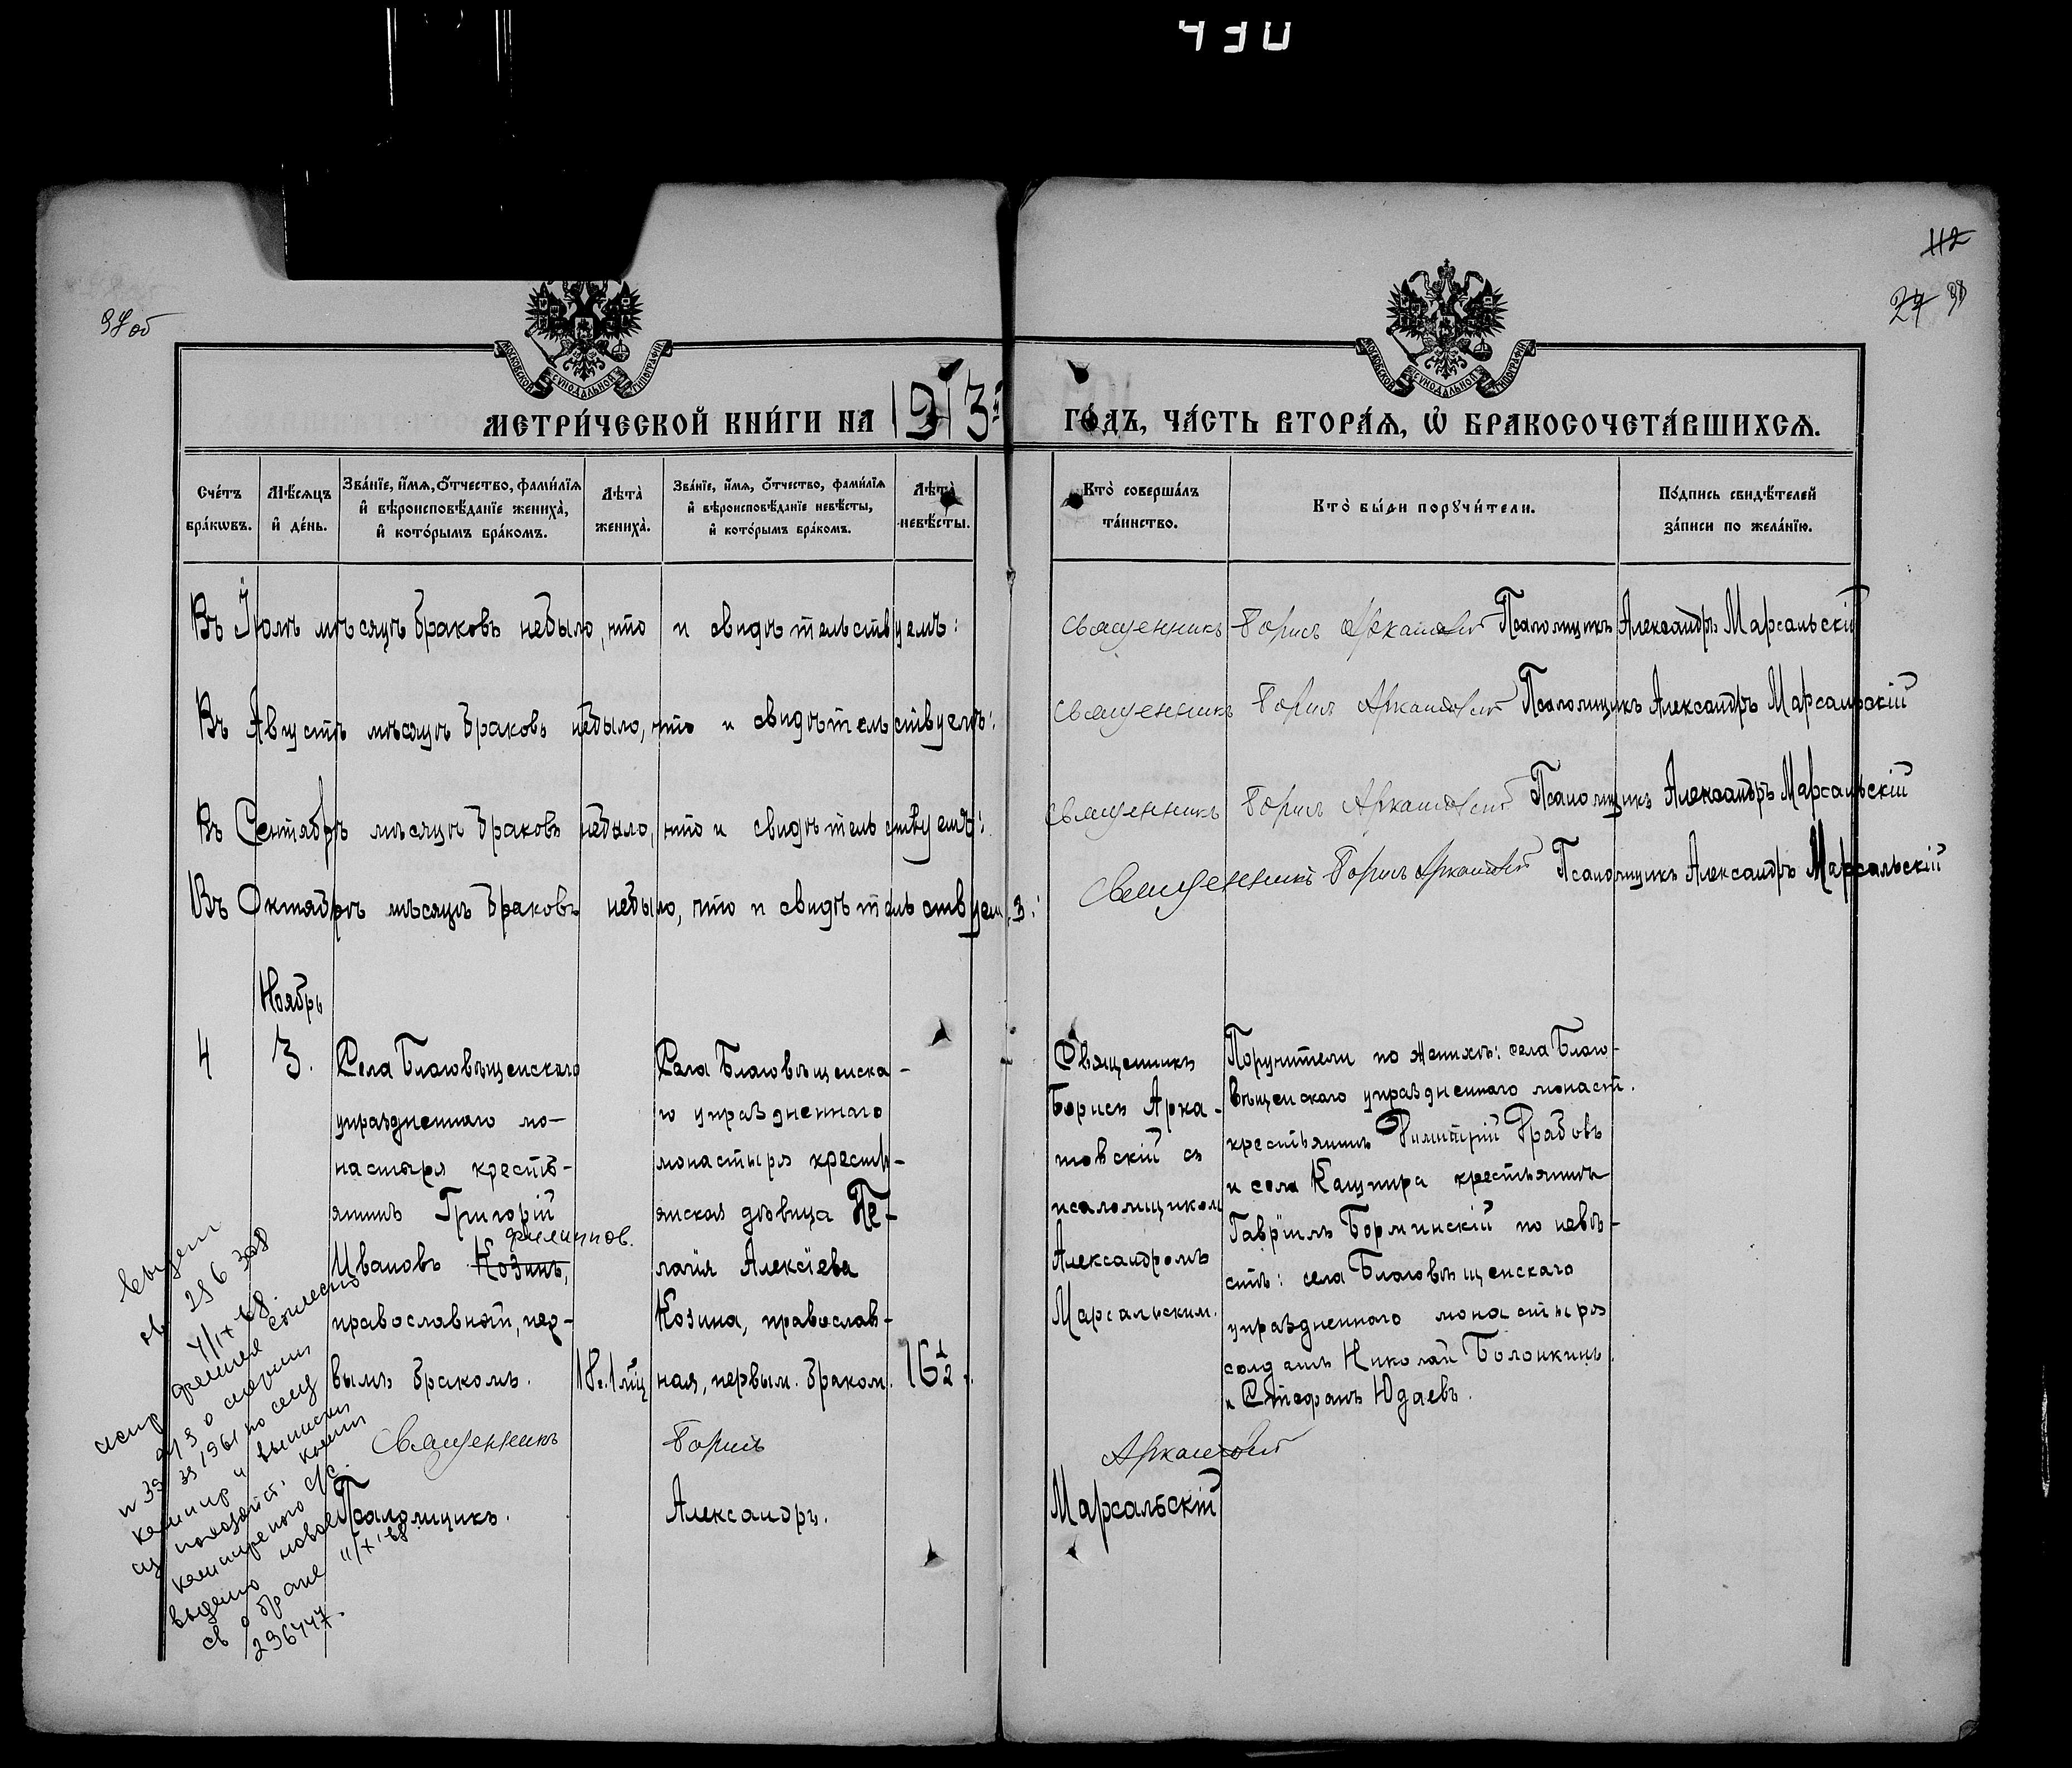 430
112
97 об
27
МОСКОВСКОЙ СУНОДАЛЬНОЙ ТИПОГРАФІИ
МОСКОВСКОЙ СУНОДАЛЬНОЙ ТИПОГРАФІИ
МЕТРИ́ЧЕСКОЙ КНИ́ГИ НА 1913й ГО́ДЪ, ЧА́СТЬ ВТОРА́Ѧ, Ѡ҆ БРАКОСОЧЕТА́ВШИХСѦ.
Сче́тъ бра́кѡвъ.
Мѣ́сѧцъ и҆ де́нь.
Зва́нїе, и҆́мѧ, ѻ҆́тчество, фами́лїѧ и҆ вѣроисповѣ́данїе жениха̀, и҆ кото́рымъ бра́комъ.
Лѣта̀ жениха̀.
Зва́нїе, и҆́мѧ, ѻ҆́тчество, фами́лїѧ и҆ вѣроисповѣ́данїе невѣ́сты, и҆ кото́рымъ бра́комъ.
Лѣта̀ невѣ́сты.
Кто̀ соверша́лъ та́инство.
Кто̀ бы́ли порꙋчи́тели.
По́дпись свидѣ́телей за́писи по жела́нїю.
Въ Іюлѣ мѣсяцѣ браковъ небыло, что и свидѣтельствуемъ: Священникъ Борисъ Аркатовскій Псаломщикъ Александръ Марсальскій
Въ Августѣ мѣсяцѣ браковъ небыло, что и свидѣтельствуемъ: Священникъ Борисъ Аркатовскій Псаломщикъ Александръ Марсальскій
Въ Сентябрѣ мѣсяцѣ браковъ небыло, что и свидѣтельствуемъ: Священникъ Борисъ Аркатовскій Псаломщикъ Александръ Марсальскій
Въ Октябрѣ мѣсяцѣ браковъ небыло, что и свидѣтельствуемъ: Священникъ Борисъ Аркатовскій Псаломщикъ Александръ Марсальскій
Ноябрь
4
3.
Села Благовѣщенскаго
упраздненнаго мо-
настыря кресть-
янинъ Григорій
Филиппов.
Ивановъ Козинъ,
православной, пер-
вымъ бракомъ.
18 л. 1 мѣц
Села Благовѣщенска-
го упраздненнаго
монастыря кресть-
янская дѣвица Пе-
лагія Алексѣева
Козина, православ-
ная, первым. браком.
16 1/2
Священникъ
Борисъ Арка-
товскій съ
псаломщикомъ
Александромъ
Марсальским.
Поручители по женихѣ: села Благо-
вѣщенскаго упраздненнаго монаст.
крестьянинъ Димитрій Грабовъ
и села Кашпира крестьянинъ
Гавріилъ Борминскій по невѣ-
стѣ: села Благовѣщенскаго
упраздненнаго монастыря
солдатъ Николай Болонкинъ
и Стефанъ Юдаевъ.
Священникъ Борисъ Аркатовскій
Псаломщикъ. Александръ. Марсальскій
выдан
св 256 308
4/IX 68.
испр фамилия согласно
выдано новое
св о браке 11/X 68
296447.